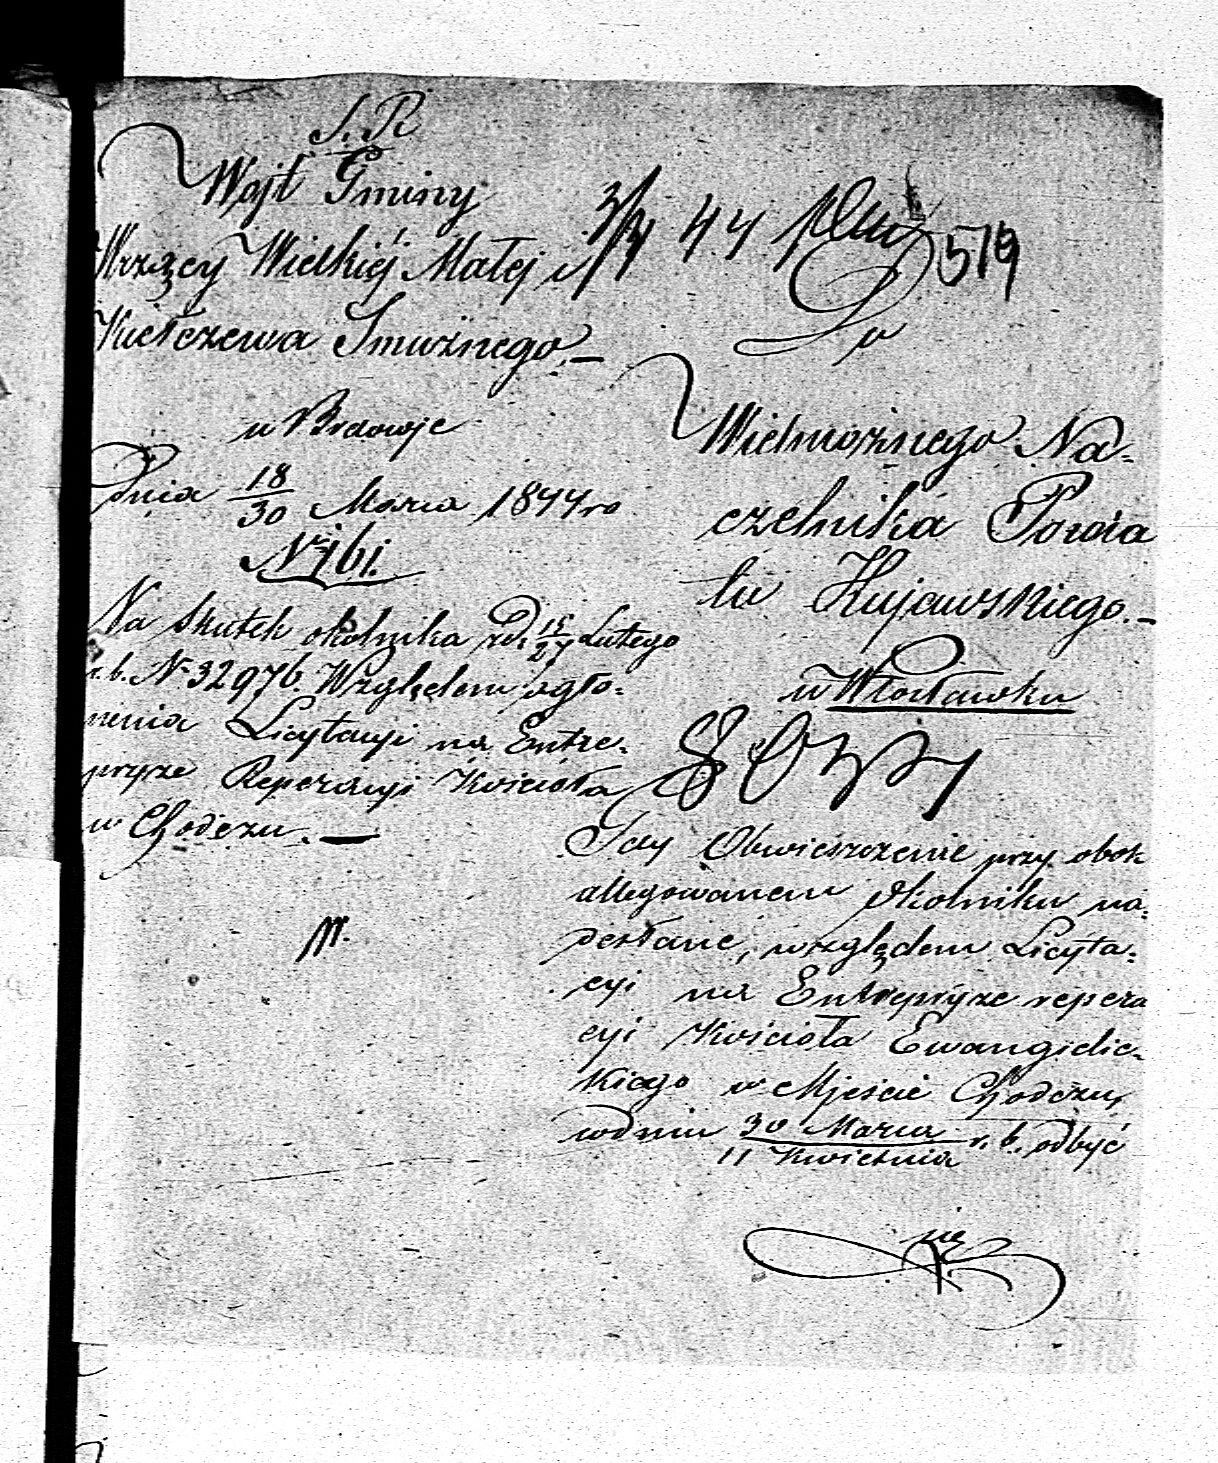 S. R
Wojt Gminy
Wrzący Wielkiéj Małej i
Kiełczewa Smużnego
w Brdowje
Dnia 18/30 Marca 1844 ro
No 161.
Na skutek okolnika zd. 15/27 Lutego
r. b. No 32976. Względem ogło=
nenia Licytacyi na Entre=
pryze Reperacyi Kościoła
w Chodczu. —
3/4 44
519
Do
Wielmożnego Na=
czelnika Powia
tu Kujawskiego. —
w Włocławku
Tey Obwieszczenie przy obok
allegowanem Okolniku na=
desłane, względem Licyta=
cyi na Entrepryze repera
cyi Kościoła Ewangielic=
kiego w Mjeście Chodczu,
w dniu 30 Marca / 11 Kwietnia r. b. odbyć
się